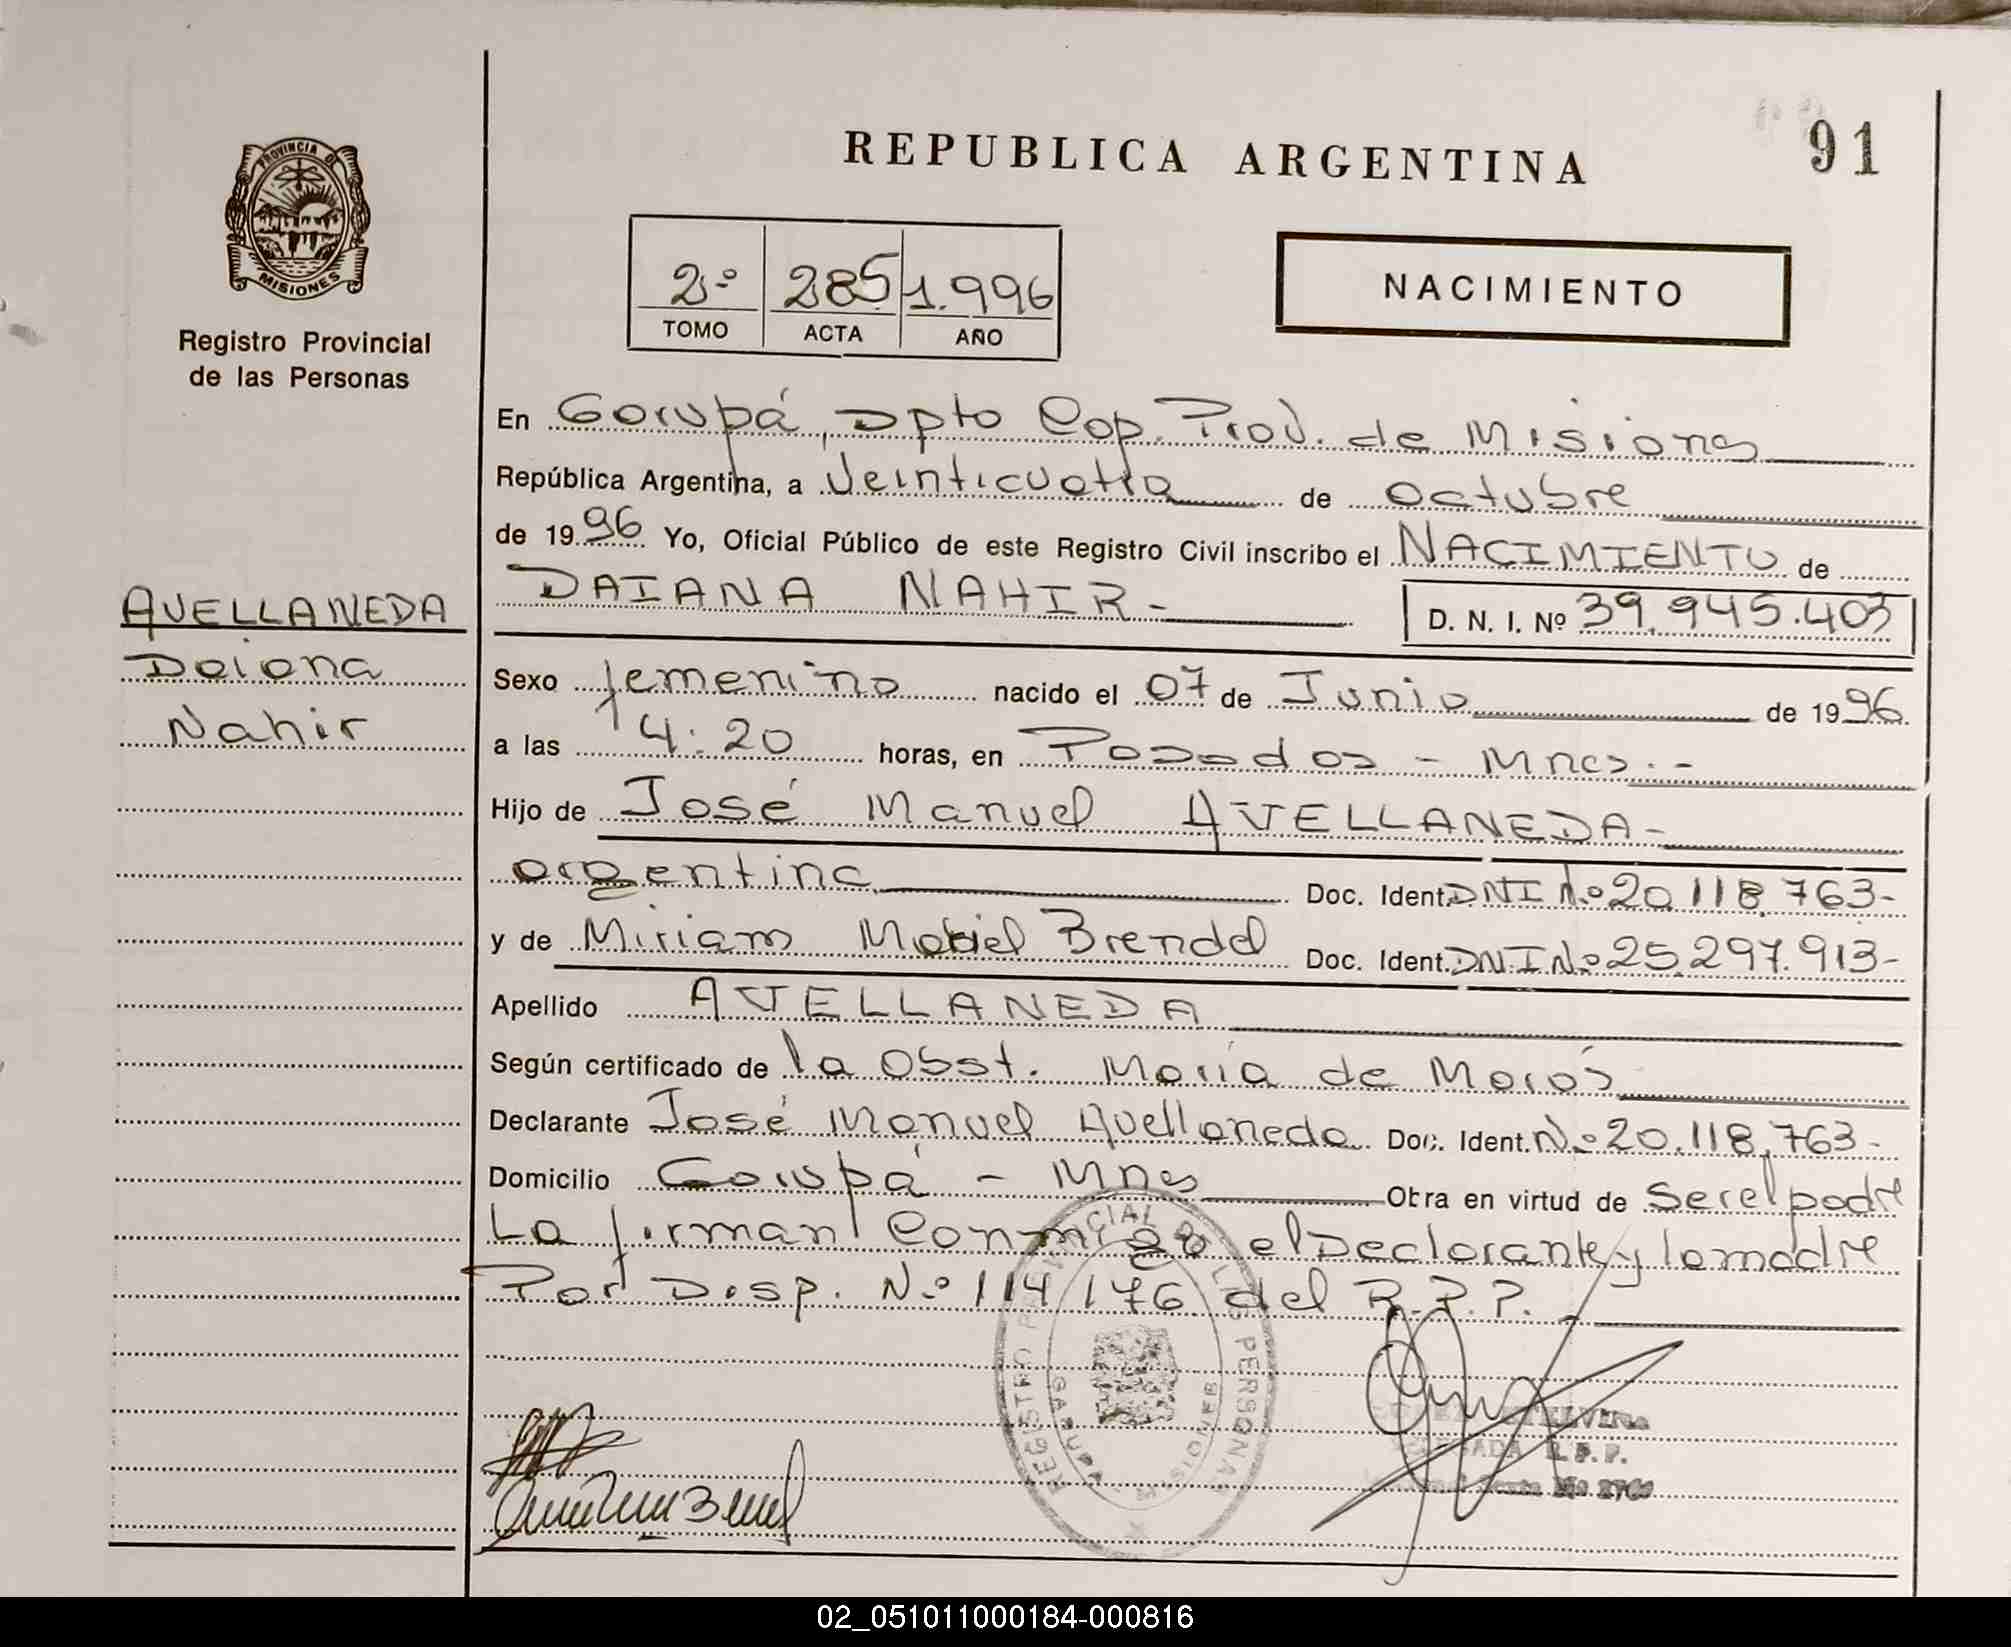 PROVINCIA DE
MISIONES
Registro Provincial
de las Personas
AVELLANEDA
Daiana
Nahir
REPUBLICA ARGENTINA
91
2º 285 1.996
TOMO ACTA AÑO
NACIMIENTO
En Garupá, Dpto Cap. Prov. de Misiones
República Argentina, a Veinticuatro de octubre
de 1996 Yo, Oficial Público de este Registro Civil inscribo el NACIMIENTO de
DAIANA NAHIR.-
D. N. I. Nº 39.945.403
Sexo femenino nacido el 07 de Junio de 1996
a las 14:20 horas, en Posadas - Mnes.-
Hijo de José Manuel AVELLANEDA-
argentina Doc. Ident. DNI Nº 20.118.763-
y de Miriam Mabiel Brendel Doc. Ident. DNI Nº 25.297.913-
Apellido AVELLANEDA
Según certificado de la Obst. María de Morós
Declarante José Manuel Avellaneda Doc. Ident. Nº 20.118.763-
Domicilio Garupá - Mnes Obra en virtud de ser el padre
La firman conmigo el Declarante y la madre
Por Disp. Nº 114/76 del R.P.P.
REGISTRO PROVINCIAL DE LAS PERSONAS
GARUPA MISIONES
DELEGADA R. P. P.
02_051011000184-000816